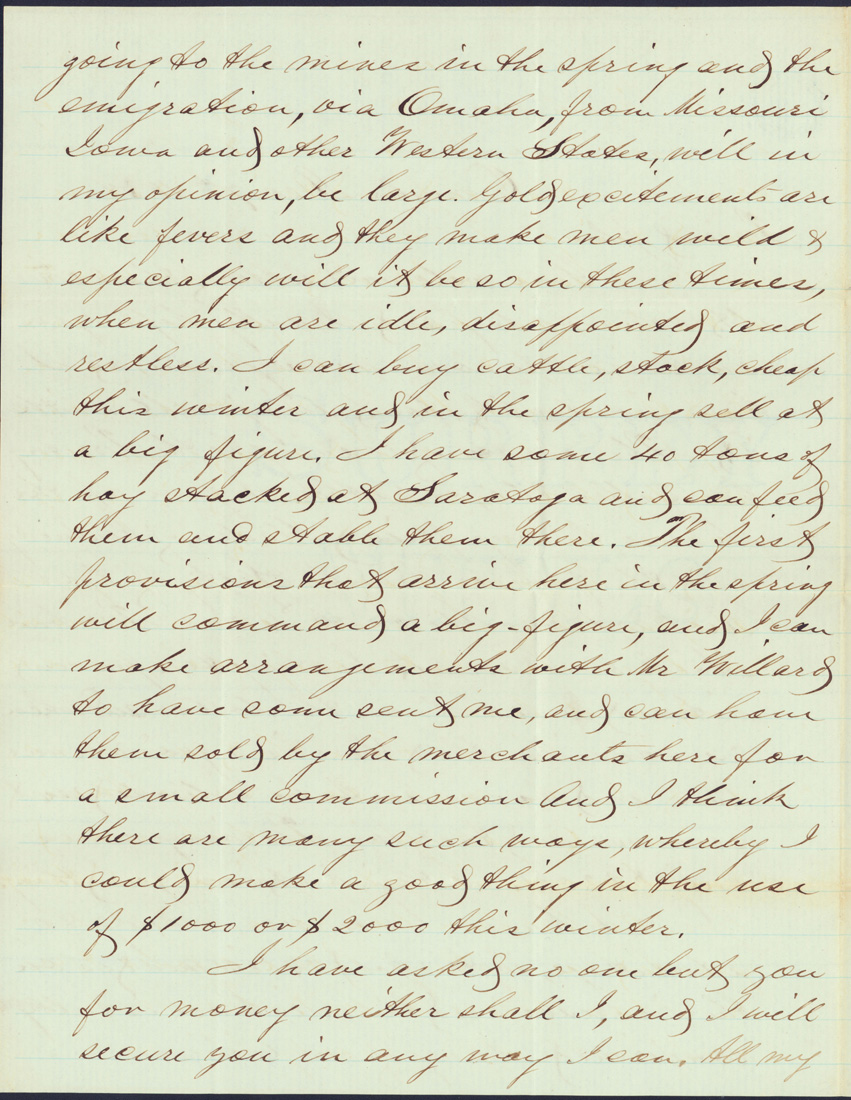 going to the mines in the spring and the
emigration, via Omaha, from Missouri
Iowa and other Western States, will in
my opinion, be large. Gold excitements are
like fevers and they make men wild &
especially will it be so in these times,
when men are idle, disappointed and
restless. I can buy cattle, stock, cheap
this winter and in the spring sell at
a big figure. I have some 40 tons of
hay stacked at Saratoga and can feed
them and stable them there. The first
provisions that arrive here in the spring
will command a big-figure, and I can
make arrangements with Mr Willard
to have some sent me, and can have
them sold by the merchants here for
a small commission And I think
there are many such ways, whereby I
could make a good thing in the use
of $1000 or $2000 this winter.
I have asked no one but you
for money neither shall I, and I will
secure you in any way I can. All my